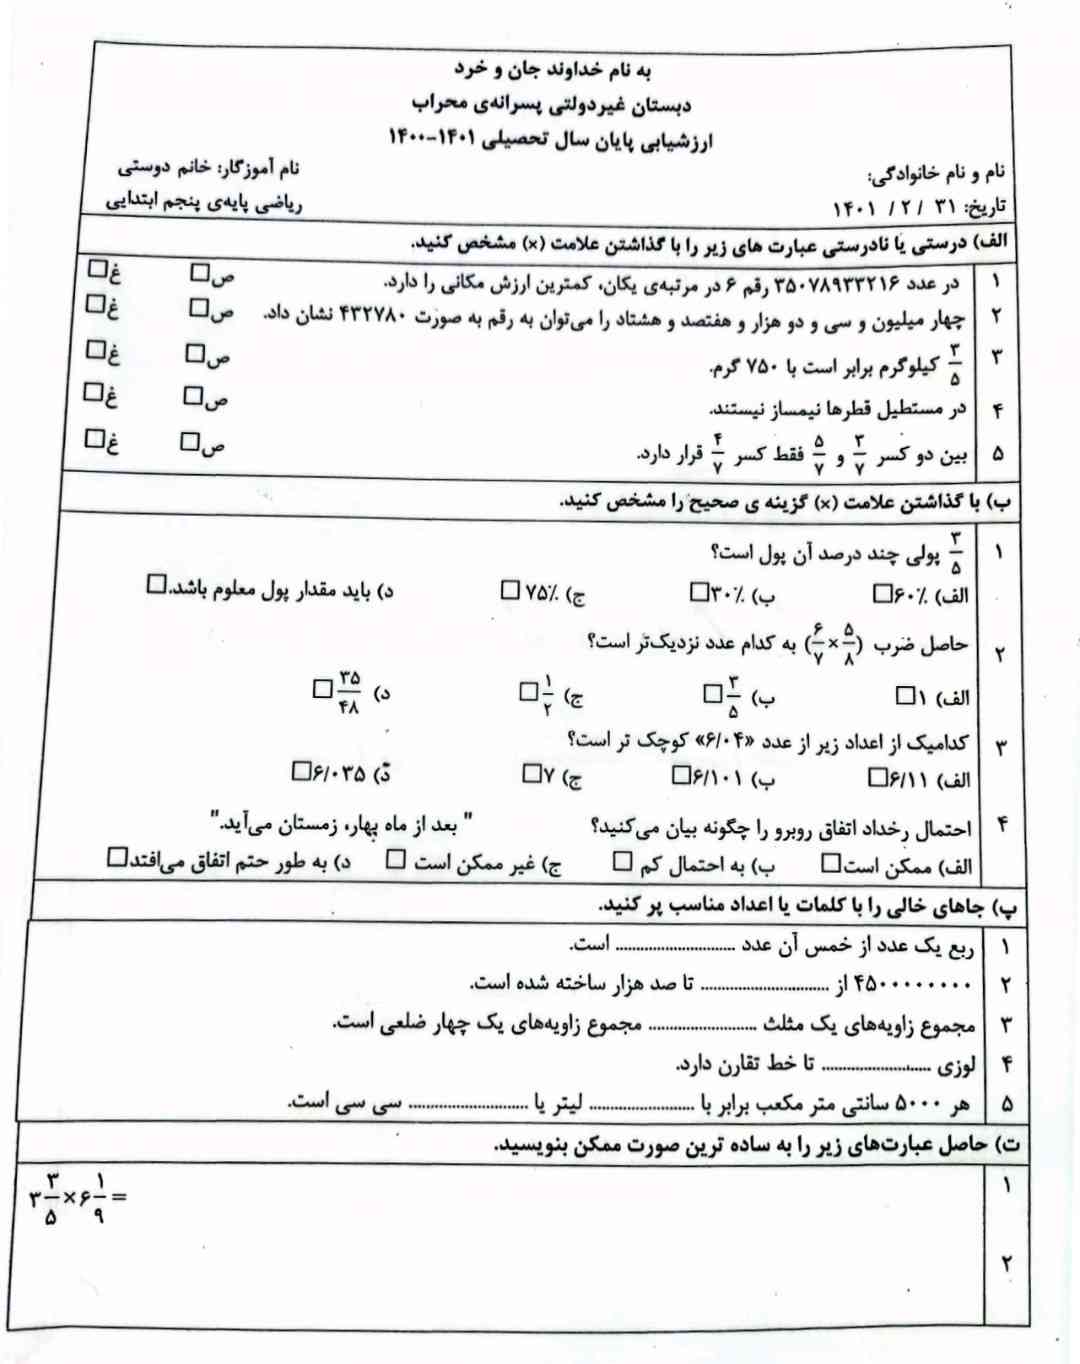 به نام خداوند جان و خرد
دبستان غیردولتی پسرانه‌ی محراب
ارزشیابی پایان سال تحصیلی ۱۴۰۱-۱۴۰۰
نام و نام خانوادگی: نام آموزگار: خانم دوستی
تاریخ: ۳۱ / ۲ / ۱۴۰۱ ریاضی پایه‌ی پنجم ابتدایی
الف) درستی یا نادرستی عبارت های زیر را با گذاشتن علامت (×) مشخص کنید.
۱ در عدد ۳۵۰۷۸۹۳۳۲۱۶ رقم ۶ در مرتبه‌ی یکان، کمترین ارزش مکانی را دارد. ص□ غ□
۲ چهار میلیون و سی و دو هزار و هفتصد و هشتاد را می‌توان به رقم به صورت ۴۳۲۷۸۰ نشان داد. ص□ غ□
۳ ۳/۵ کیلوگرم برابر است با ۷۵۰ گرم. ص□ غ□
۴ در مستطیل قطرها نیمساز نیستند. ص□ غ□
۵ بین دو کسر ۳/۷ و ۵/۷ فقط کسر ۴/۷ قرار دارد. ص□ غ□
ب) با گذاشتن علامت (×) گزینه ی صحیح را مشخص کنید.
۱ ۳/۵ پولی چند درصد آن پول است؟
الف) ۶۰٪□ ب) ۳۰٪□ ج) ۷۵٪□ د) باید مقدار پول معلوم باشد.□
۲ حاصل ضرب (۶/۷×۵/۸) به کدام عدد نزدیک‌تر است؟
الف) ۱□ ب) ۳/۵□ ج) ۱/۲□ د) ۳۵/۴۸□
۳ کدامیک از اعداد زیر از عدد «۶/۰۴» کوچک تر است؟
الف) ۶/۱۱□ ب) ۶/۱۰۱□ ج) ۷□ د) ۶/۰۳۵□
۴ احتمال رخداد اتفاق روبرو را چگونه بیان می‌کنید؟ " بعد از ماه بهار، زمستان می‌آید."
الف) ممکن است□ ب) به احتمال کم□ ج) غیر ممکن است□ د) به طور حتم اتفاق می‌افتد□
پ) جاهای خالی را با کلمات یا اعداد مناسب پر کنید.
۱ ربع یک عدد از خمس آن عدد ............................ است.
۲ ۴۵۰۰۰۰۰۰۰۰۰ از .............................. تا صد هزار ساخته شده است.
۳ مجموع زاویه‌های یک مثلث .......................... مجموع زاویه‌های یک چهار ضلعی است.
۴ لوزی .......................... تا خط تقارن دارد.
۵ هر ۵۰۰۰ سانتی متر مکعب برابر با ......................... لیتر یا ............................ سی سی است.
ت) حاصل عبارت‌های زیر را به ساده ترین صورت ممکن بنویسید.
۱ ۳ ۳/۵ × ۶ ۱/۹ =
۲